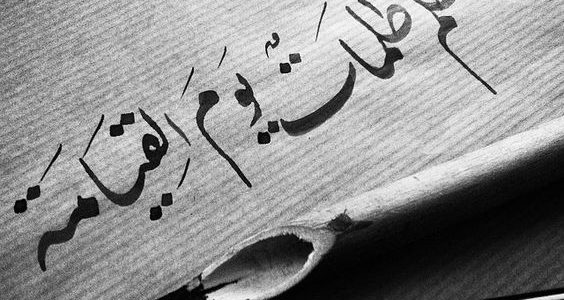 ظلمات يوم القيامة